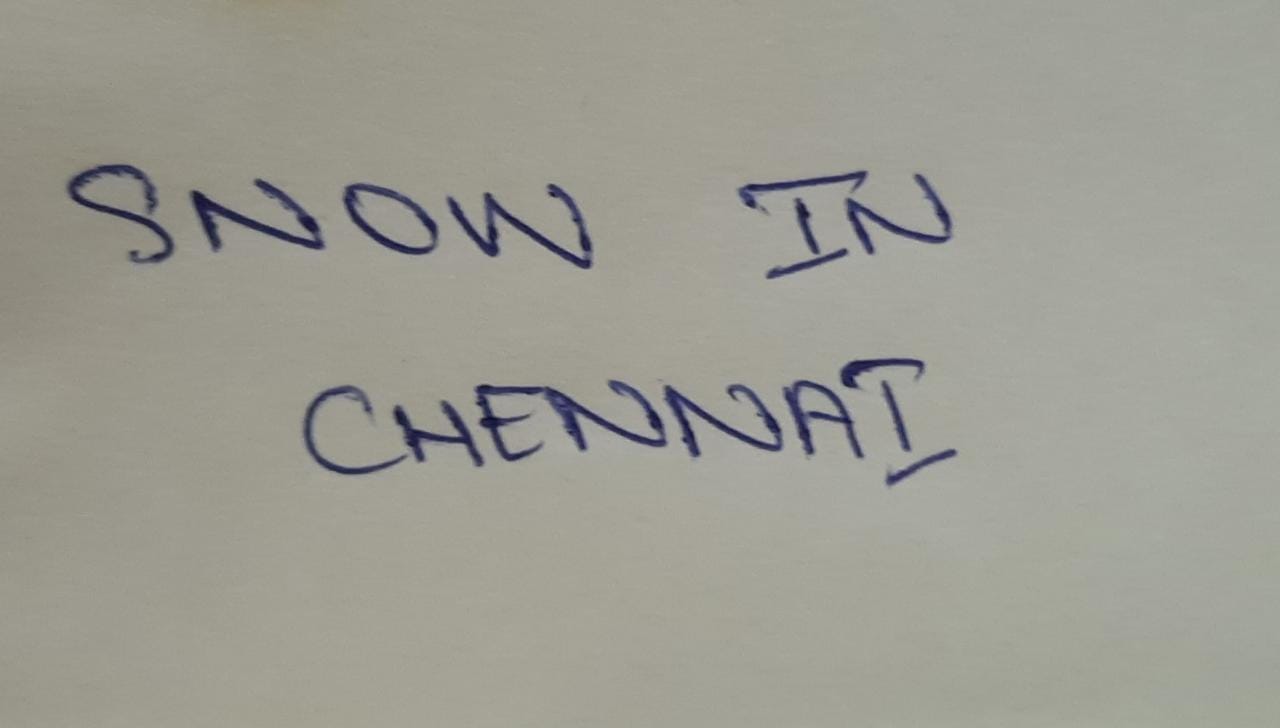 SNOW IN
CHENNAI